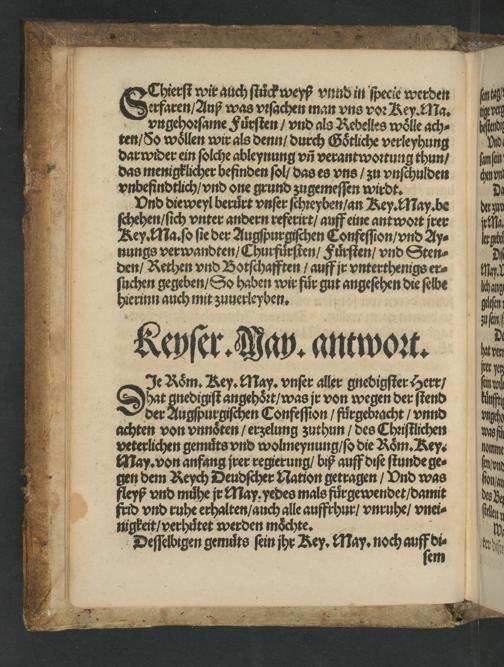 SChierst wir auch stückweyß vnnd in specie werden
erfaren/Auß was vrsachen man vns vor Key.Ma.
vngehorsame Fürsten / vnd als Rebelles wölle ach-
ten/So wöllen wir als denn/durch Götliche verleyhung
darwider ein solche ableynung vñ verantwortung thun/
das menigklicher befinden sol/das es vns / zu vnschulden
vnbefindtlich/vnd one grund zugemessen wirdt.
Vnd dieweyl berürt vnser schreyben/an Key.May.be
schehen/sich vnter andern referirt/ auff eine antwort jrer
Key.Ma.so sie der Augspurgischen Confession/vnd Ay-
nungs verwandten/Churfürsten/ Fürsten/ vnd Sten-
den/ Rethen vnd Botschafften / auff jr vnterthenigs er-
suchen gegeben/So haben wir für gut angesehen die selbe
hierinn auch mit zuuerleyben.
Keyser.May. antwort.
DJe Röm. Key. May. vnser aller gnedigster Herr/
hat gnedigist angehört/was jr von wegen der stend
der Augspurgischen Confession / fürgebracht / vnnd
achten von vnnöten/erzelung zuthun/des Christlichen
veterlichen gemüts vnd wolmeynung/so die Röm.Key.
May.von anfang jrer regierung/ biß auff dise stunde ge-
gen dem Reych Deudscher Nation getragen / Vnd was
fleyß vnd mühe jr May.yedes mals fürgewendet/damit
frid vnd ruhe erhalten/auch alle auffrhur/vnruhe/vnei-
nigkeit/verhütet werden möchte.
Desselbigen gemüts sein jhr Key. May. noch auff di-
sem